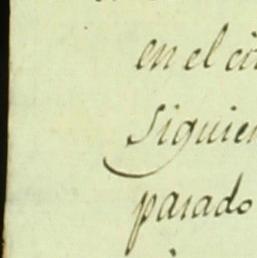 en el co
Siguien
parado